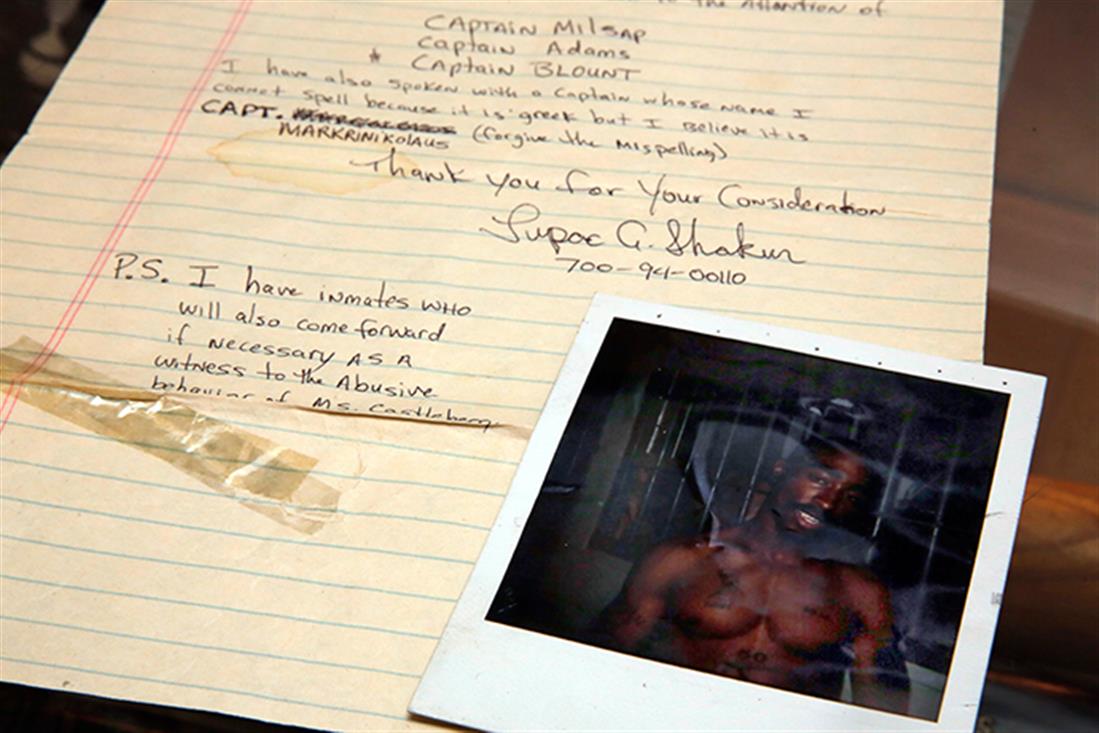 to the Attention of
CAPTAIN MILSAP
Captain Adams
* Captain BLOUNT
I have also spoken with a Captain whose name I
cannot spell because it is greek but I Believe it is
CAPT.
MARKRINIKOLAUS (forgive the mispelling)
Thank you for Your Consideration
Tupac A. Shakur
700-94-00110
P.S. I have inmates who
will also come forward
if necessary AS A
witness to the Abusive
behavior of Ms. Castleberry